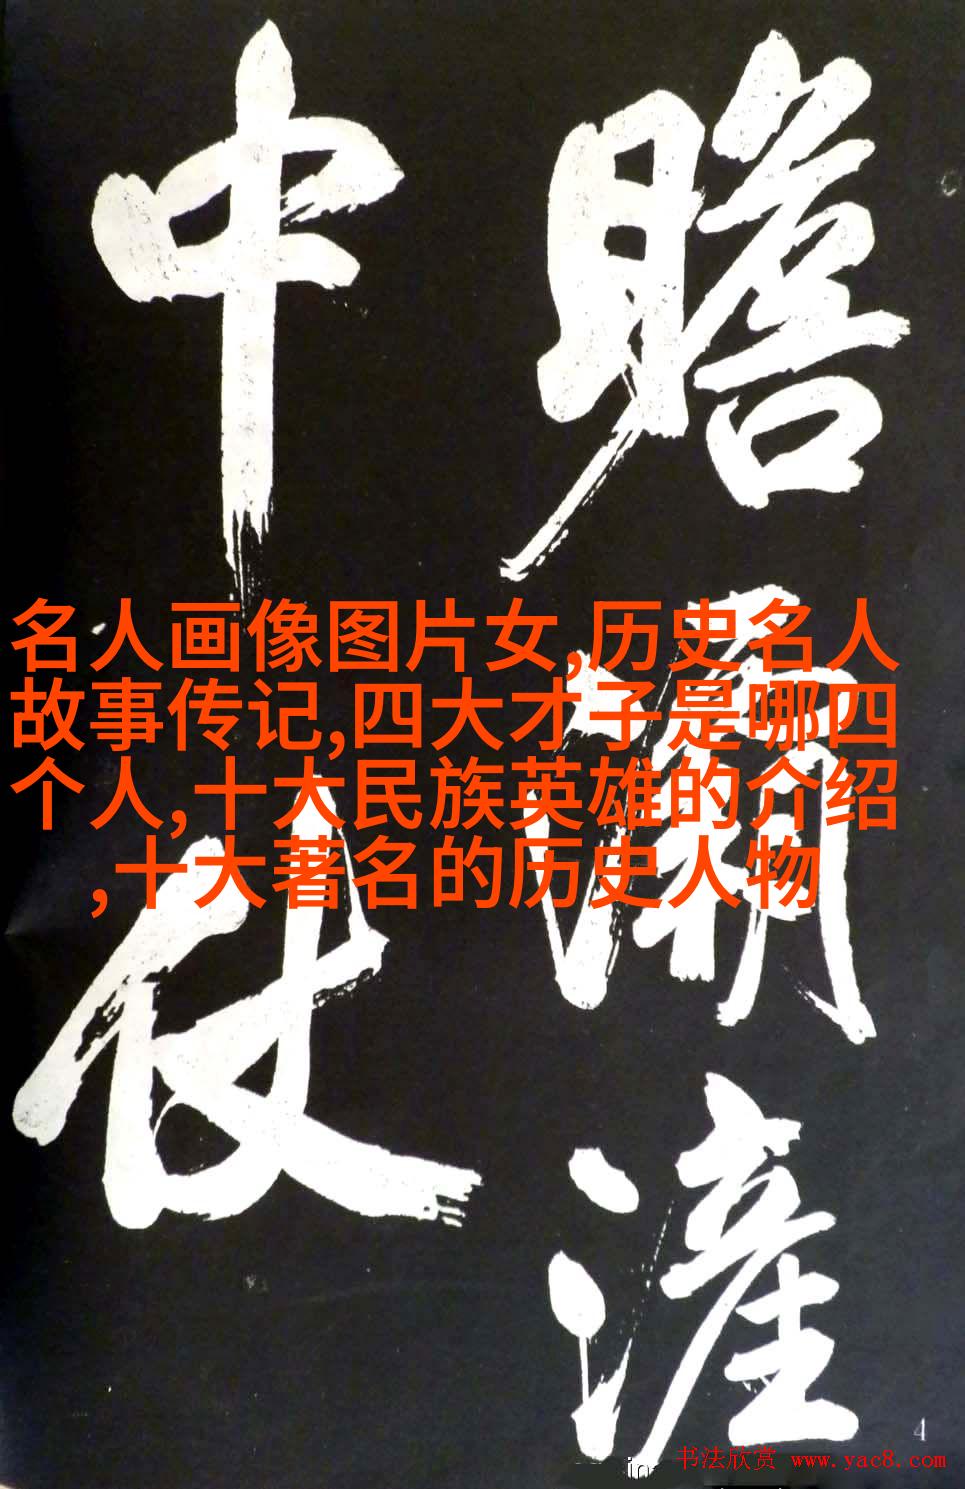 瞻滻
中仗
名人画像图片女,历史名人
故事传记,四大才子是哪四
个人,十大民族英雄的介绍
,十大著名的历史人物
4
书法欣赏 www.yac8.com